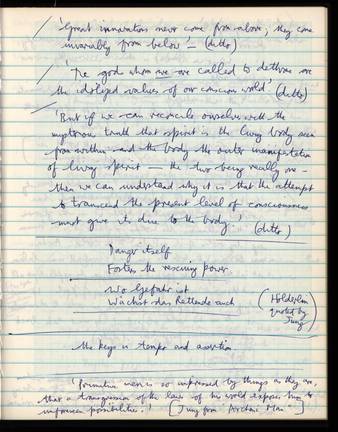 'Great innovations never come from above, they come
invariably from below – (ditto)
'The gods whom we are called to dethrone are
the idolized values of our conscious world' (ditto)
'But if we can reconcile ourselves with the
mysterious truth that spirit is the living body seen
from within and the body the outer manifestation
of living spirit – the two being really one –
then we can understand why it is that the attempt
to transcend the present level of consciousness
must give its due to the body.' (ditto)
Danger itself
Fosters the rescuing power
Wo Gefahr ist
Wächst das Rettende auch
(Hölderlin
quoted by
Jung)
the keys is tempo and
'Primitive man is so impressed by things as they are,
that a transgression of the laws of his world exposes him to
unforeseen possibilities.' [Jung from 'Archaic Man']